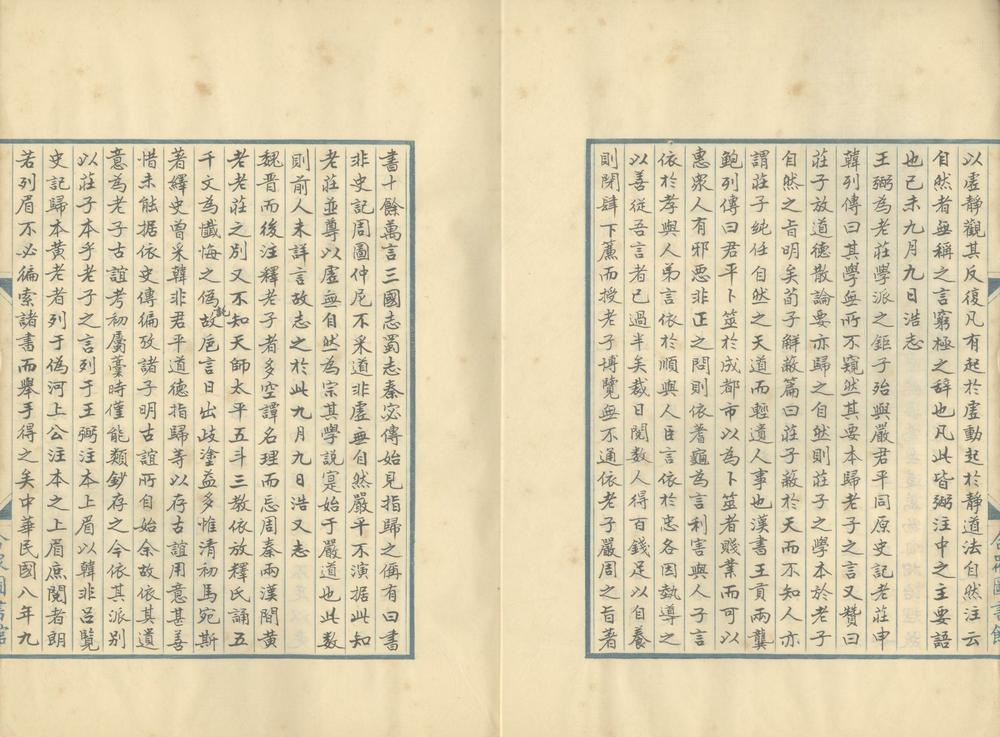 以虛靜觀其反復凡有起於虛動起於靜道法自然注云
自然者無稱之言窮極之辭也凡此皆弼注中之主要語
也己未九月九日浩志
王弼為老莊學派之鉅子殆與嚴君平同原史記老莊申
韓列傳曰其學無所不窺然其要本歸老子之言又贊曰
莊子放道德散論要亦歸之自然則莊子之學本於老子
自然之旨明矣荀子解蔽篇曰莊子蔽於天而不知人亦
謂莊子純任自然之天道而輕遺人事也漢書王貢兩龔
鮑列傳曰君平卜筮於成都市以為卜筮者賤業而可以
惠衆人有邪惡非正之問則依蓍龜為言利害與人子言
依於孝與人弟言依於順與人臣言依於忠各因埶導之
以善從吾言者已過半矣裁日閱數人得百錢足以自養
則閉肆下簾而授老子博覽無不通依老子嚴周之旨著
書十餘萬言三國志蜀志秦宓傳始見指歸之偁有曰書
非史記周圖仲尼不采道非虛無自然嚴平不演据此知
老莊並尊以虛無自然為宗其學説寔始于嚴道也此數
則前人未詳言故志之於此九月九日浩又志
魏晋而後注釋老子者多空譚名理而忘周秦兩漢閒黄
老老莊之別又不知天師太平五斗三教依放釋氏誦五
千文為懺悔之偽故訛巵言日出歧塗益多惟清初馬宛斯
著繹史曾采韓非君平道德指歸等以存古誼用意甚善
惜未能据依史傳徧攷諸子明古誼所自始余故依其遺
意為老子古誼考初屬藳時僅能類鈔存之今依其派别
以莊子本乎老子之言列于王弼注本上眉以韓非吕覽
史記歸本黄老者列于偽河上公注本之上眉庶閱者朗
若列眉不必徧索諸書而舉手得之矣中華民國八年九